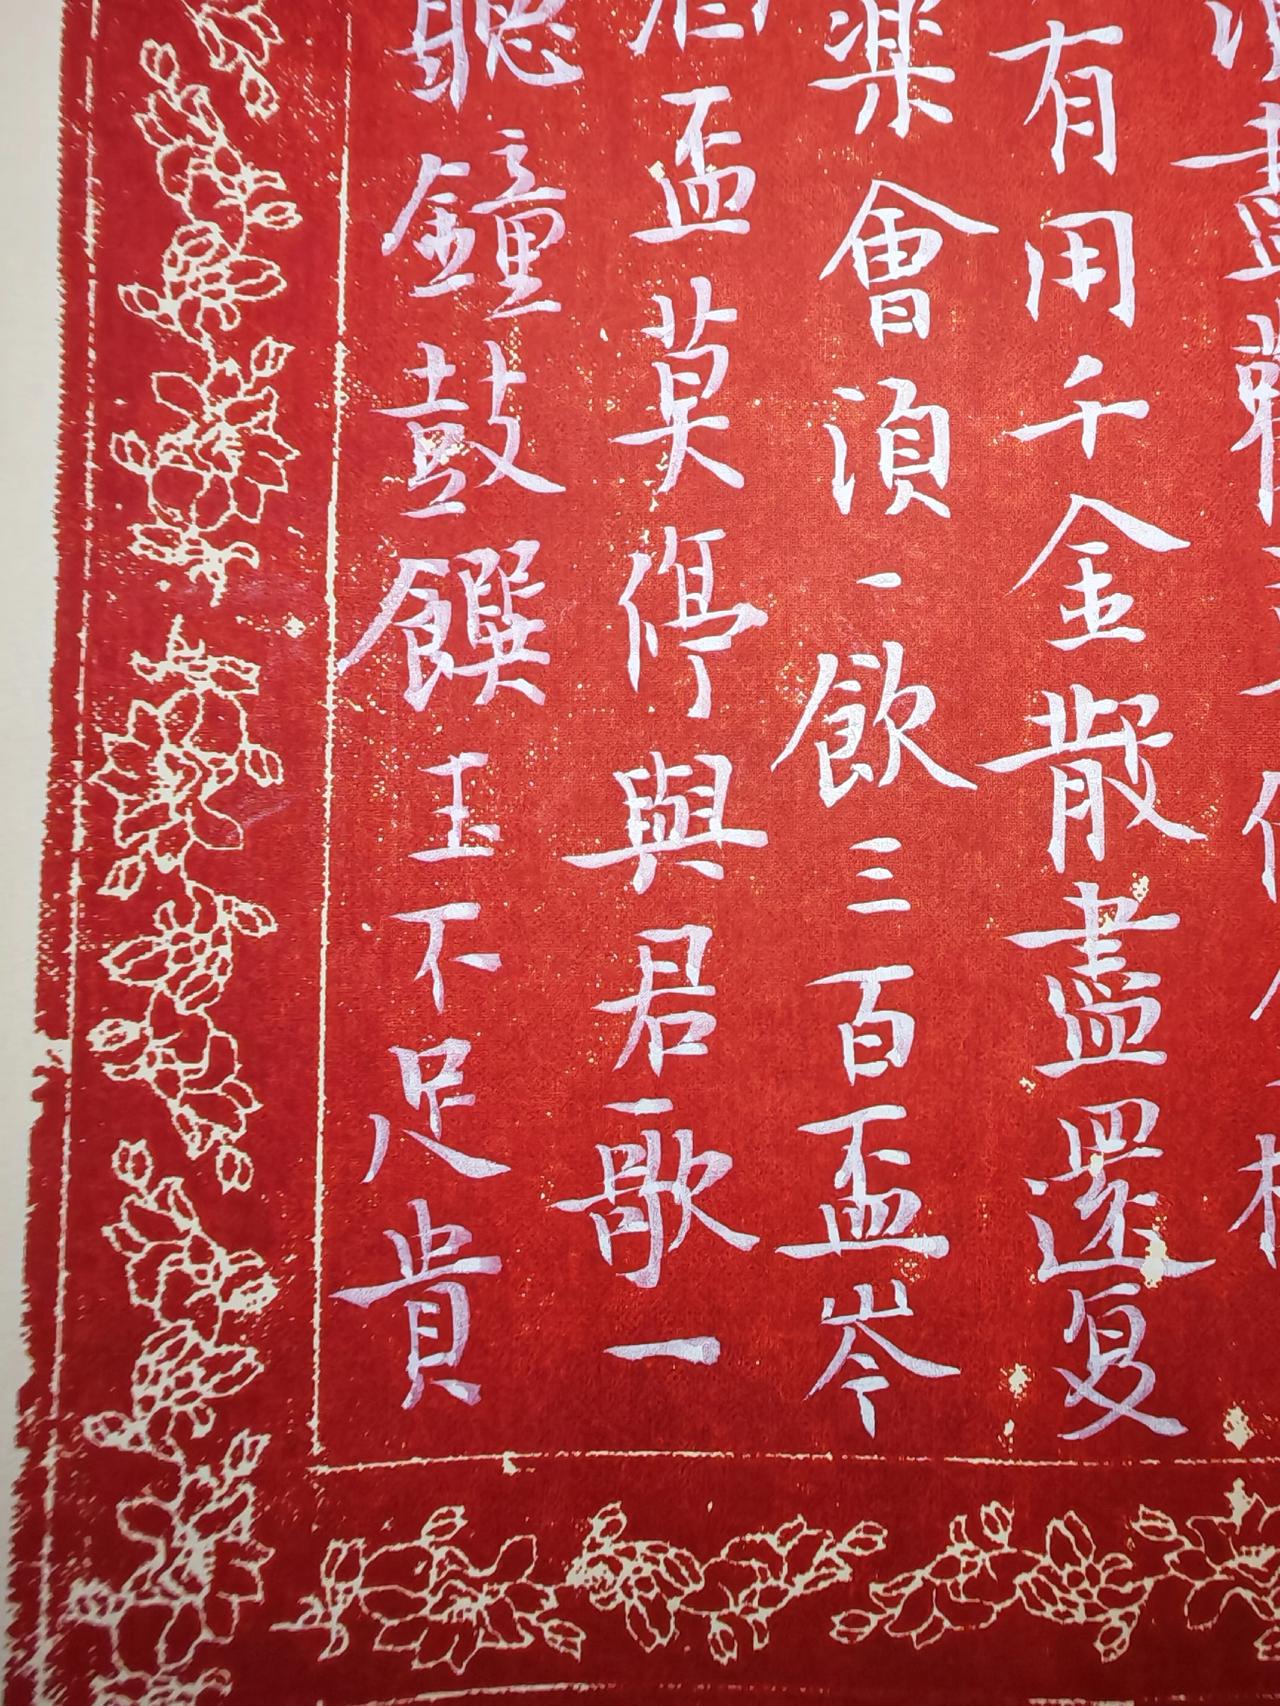 盡
有用千金散盡還复
楽會湏一飲三百盃岑
盃莫停與君歌一
聽鐘鼓饌玉不足貴